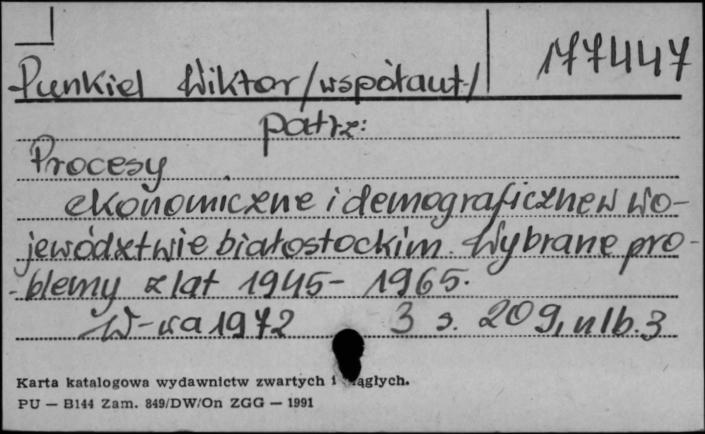 Punkiel Wiktor /współaut./ 177447
patrz:
Procesy
ekonomiczne i demograficzne w wo-
jewództwie białostockim. Wybrane pro-
blemy z lat 1945- 1965.
W-wa 1972 3 s. 209, nlb. 3
Karta katalogowa wydawnictw zwartych i ągłych.
PU — B144 Zam. 849/DW/On ZGG — 1991